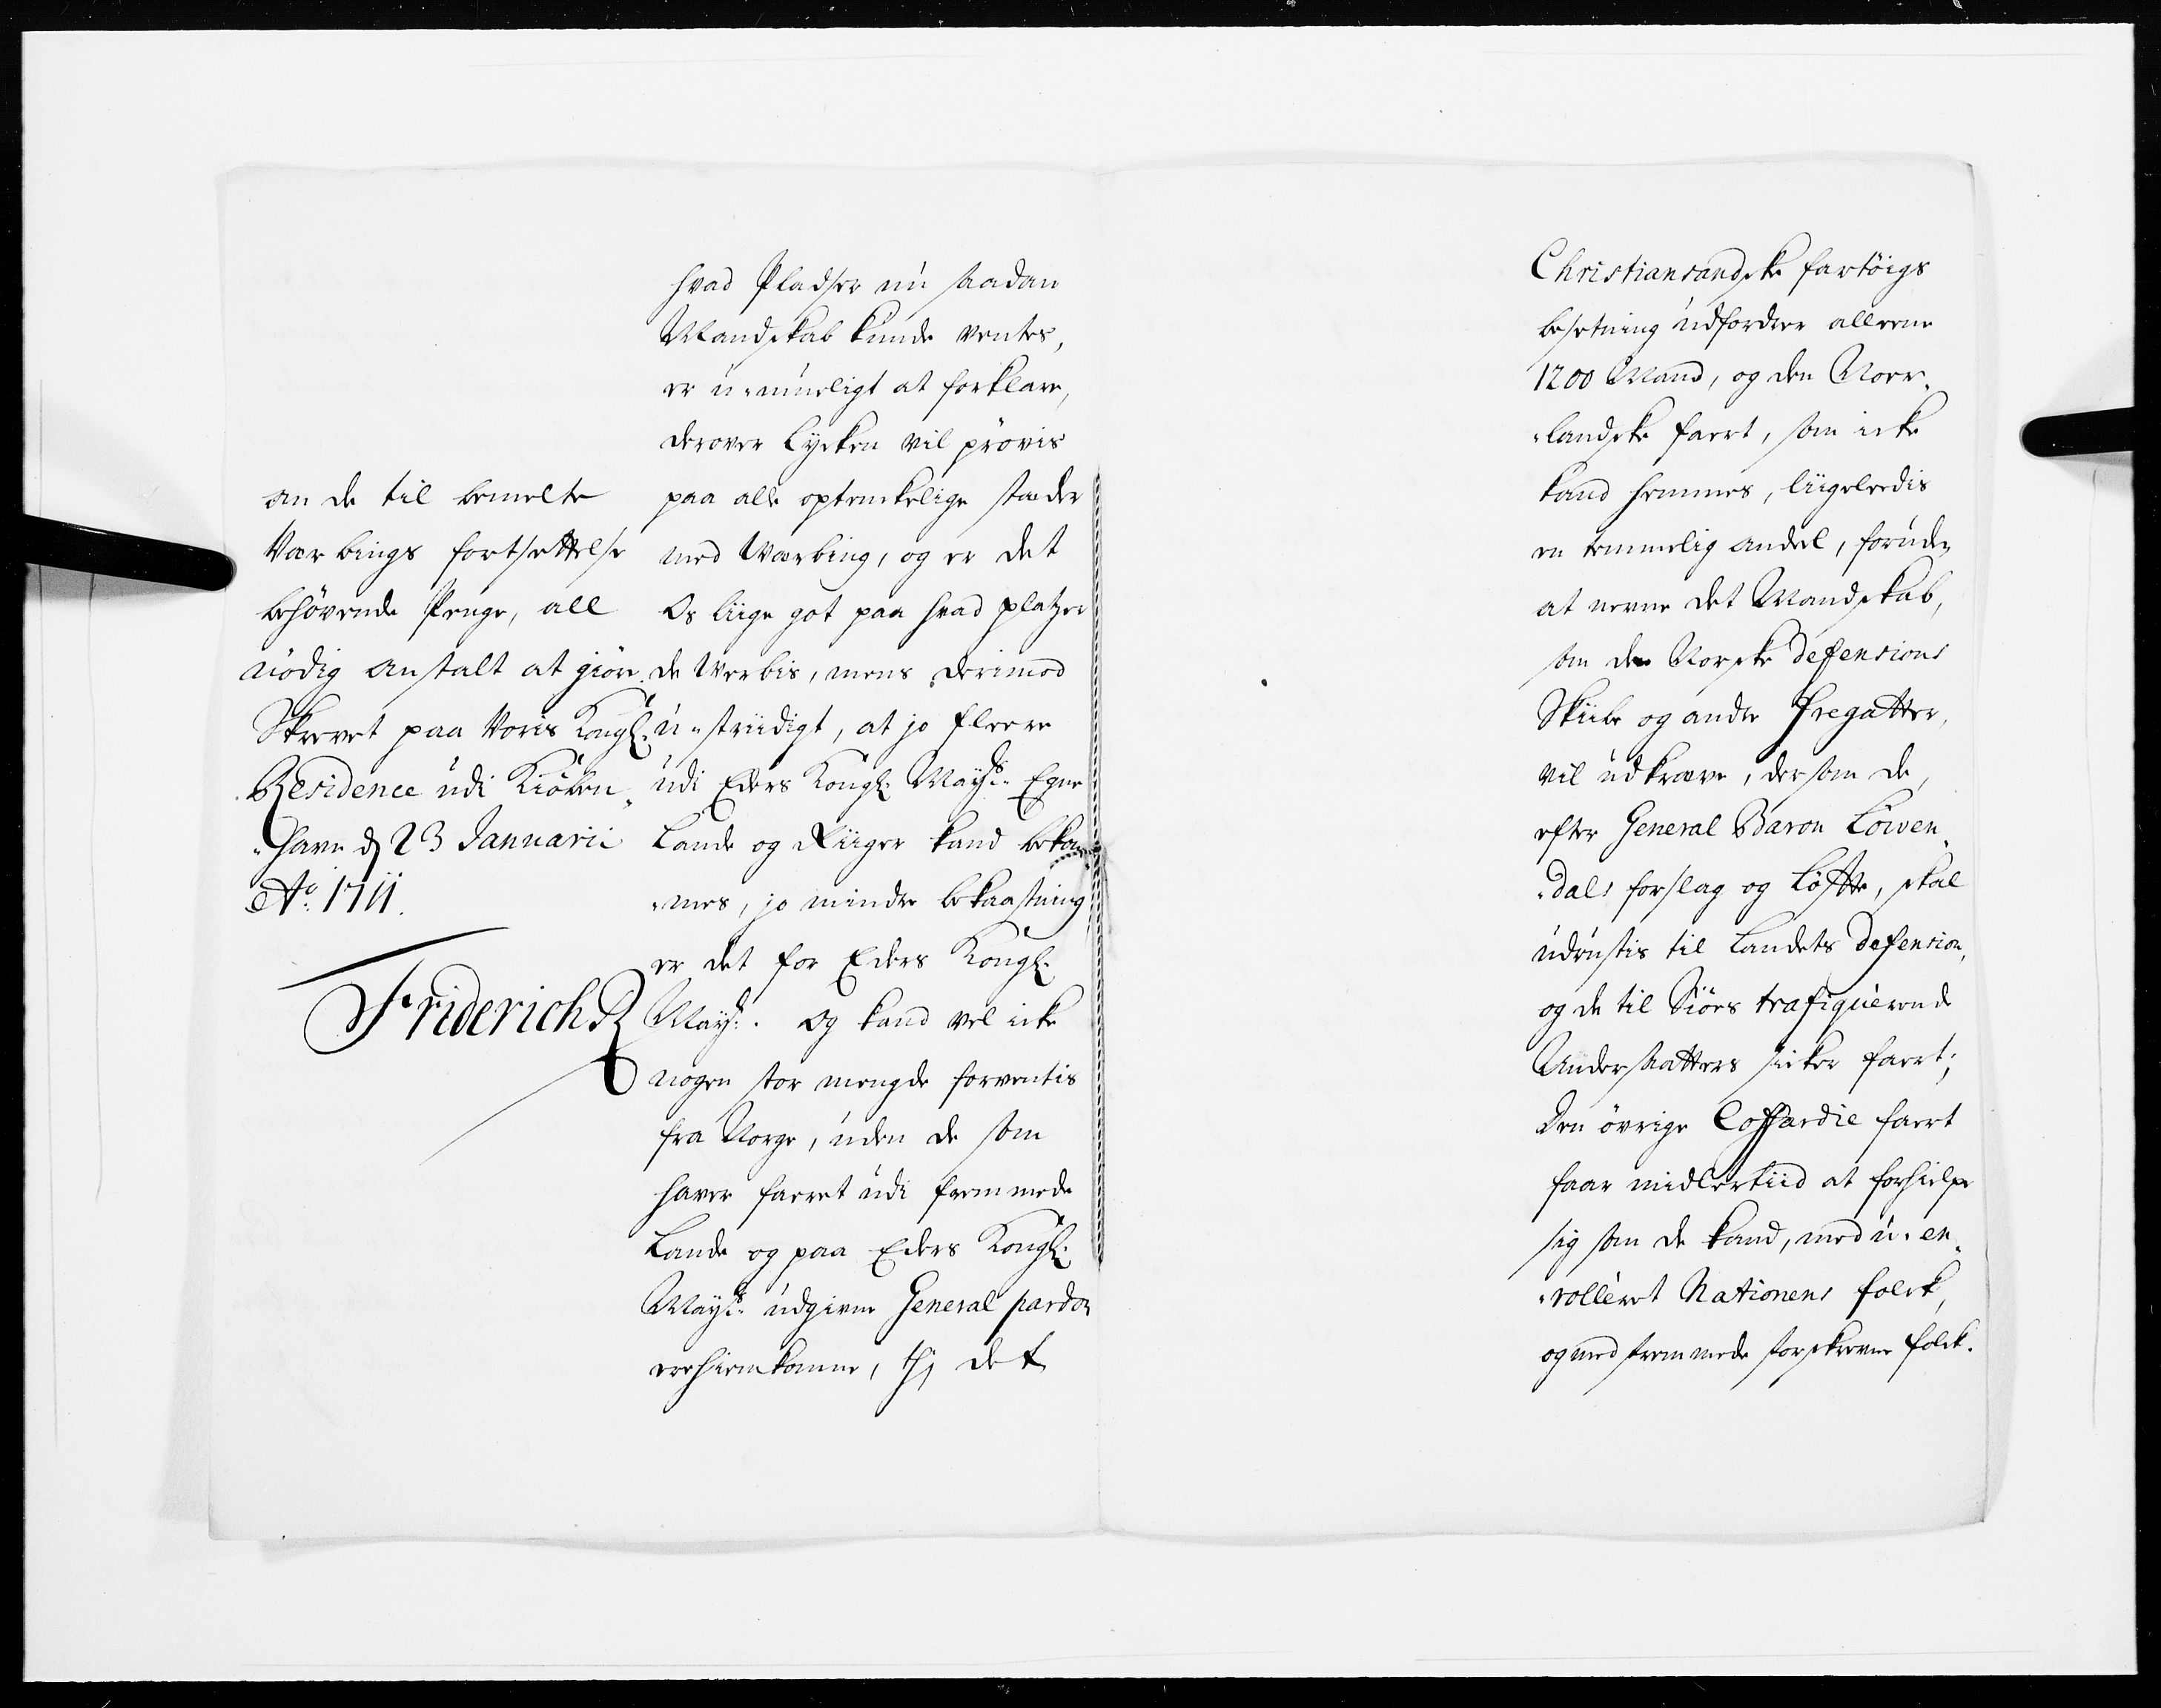 an de til bemelte
Værbings fortsættelse
behøvende Penge, all
nödig anstalt at giöre.
Skrevet paa Voris Kongl:
Residence udi Kiöben¬
havn d 23 Januarii
Ao. 1711.
Friderich R
hvad Pladser nú saadan
Mandskab kunde ventes,
er ú-múeligt at forklare,
derover Lycken vil prövis
paa alle optenckelige stæder
med Værbing, og er det
Os liige got paa hvad platzer
de Verbis, mens derimod
ú-striidigt, at jo fleere
udi Eders Kongl: Maÿts: Egne
Lande og Riiger kand bekom¬
mes, jo mindre bekaastning
er det for Eders Kongl:
Maÿt: . Og kand vel icke
nogen stor mengde forventis
fra Norge, uden de som
haver faeret udi fremmede
Lande og paa Eders Kongl:
Maÿts: udgivne General pardon
ere hiemkomne, thj det
Christiansandske fartöigs
besetning udfordrer alleene
1200 Mand, og den Norr¬
landske faert, som icke
kand hemmes, liigeleedis
en temmelig andeel, foruden
at nevne det Mandskab,
som de Norske defensions
Skiibe og andre Fregatter,
vil udkræve, dersom de,
efter General Baron Löwen¬
dals forslag og Löffte, skal
udrústis til Landets defension,
og de til Siöes trafiquerende
Undersaatters sicker faert;
Den övrige Coffardie faert
faar midlertiid at forhielpe
sig som de kand, med ú-en¬
rolleret Nationens folck,
og med fremmede forskrevne folck.